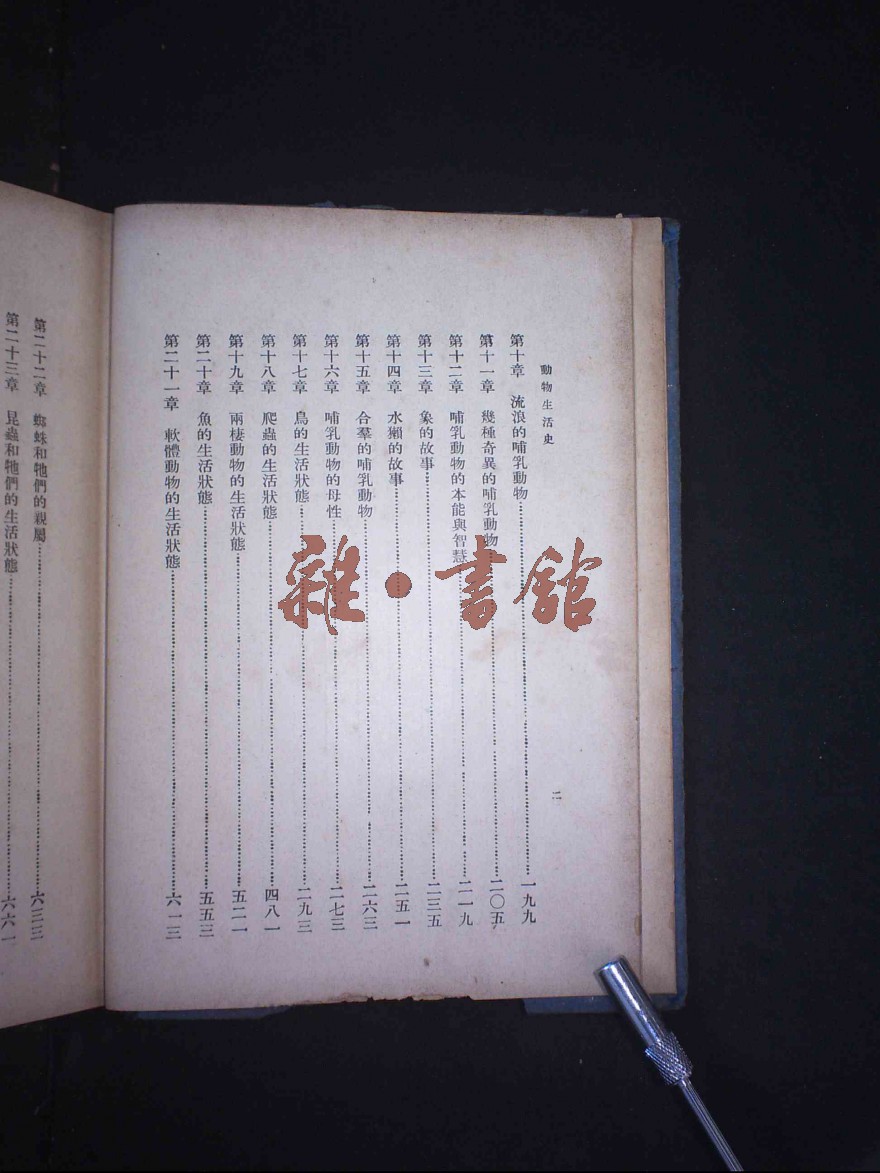 動物生活史
二
第十章　流浪的哺乳動物……一九九
第十一章　幾種奇異的哺乳動物……二〇五
第十二章　哺乳動物的本能與智慧……二一九
第十三章　象的故事……二三五
第十四章　水獺的故事……二五一
第十五章　合羣的哺乳動物……二六三
第十六章　哺乳動物的母性……二七三
第十七章　鳥的生活狀態……二九三
第十八章　爬蟲的生活狀態……四八一
第十九章　兩棲動物的生活狀態……五二一
第二十章　魚的生活狀態……五五三
第二十一章　軟體動物的生活狀態……六一三
第二十二章　蜘蛛和牠們的親屬……六三三
第二十三章　昆蟲和牠們的生活狀態……六六一
雜·書館